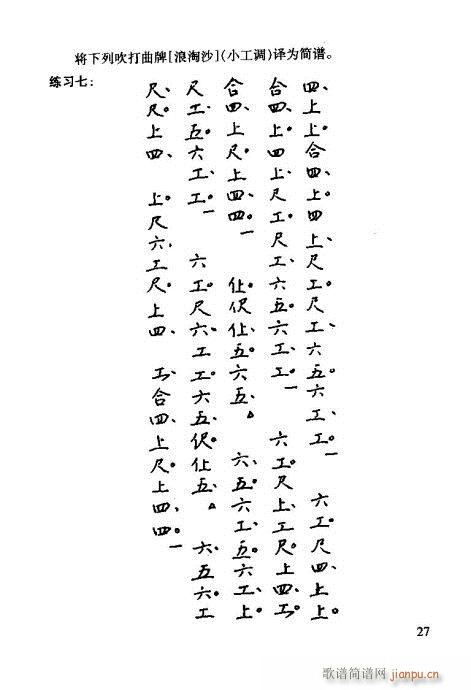 将下列吹打曲牌[浪淘沙](小工调)译为简谱。
练习七：
四、上上。合四、上。四上、尺工。尺工、六五。六工、工。一 六工。尺四、上上。
合四、上。四上、尺工。尺工、六五。六工、工。一 六工。尺上、工尺。上四、工。
合四、上尺。上四、四。一 仩、伬仩、五。六五、△ 六、五。六工、五。六工、上。
尺、工、五。六工、工。一 六工。尺六、工工。六五。伬仩。五、△ 六、五六。工
尺、尺。上四、 上。尺六、工尺。上四、 工、合四、上尺。上四、四。一
27
歌谱简谱网
jianpu.cn